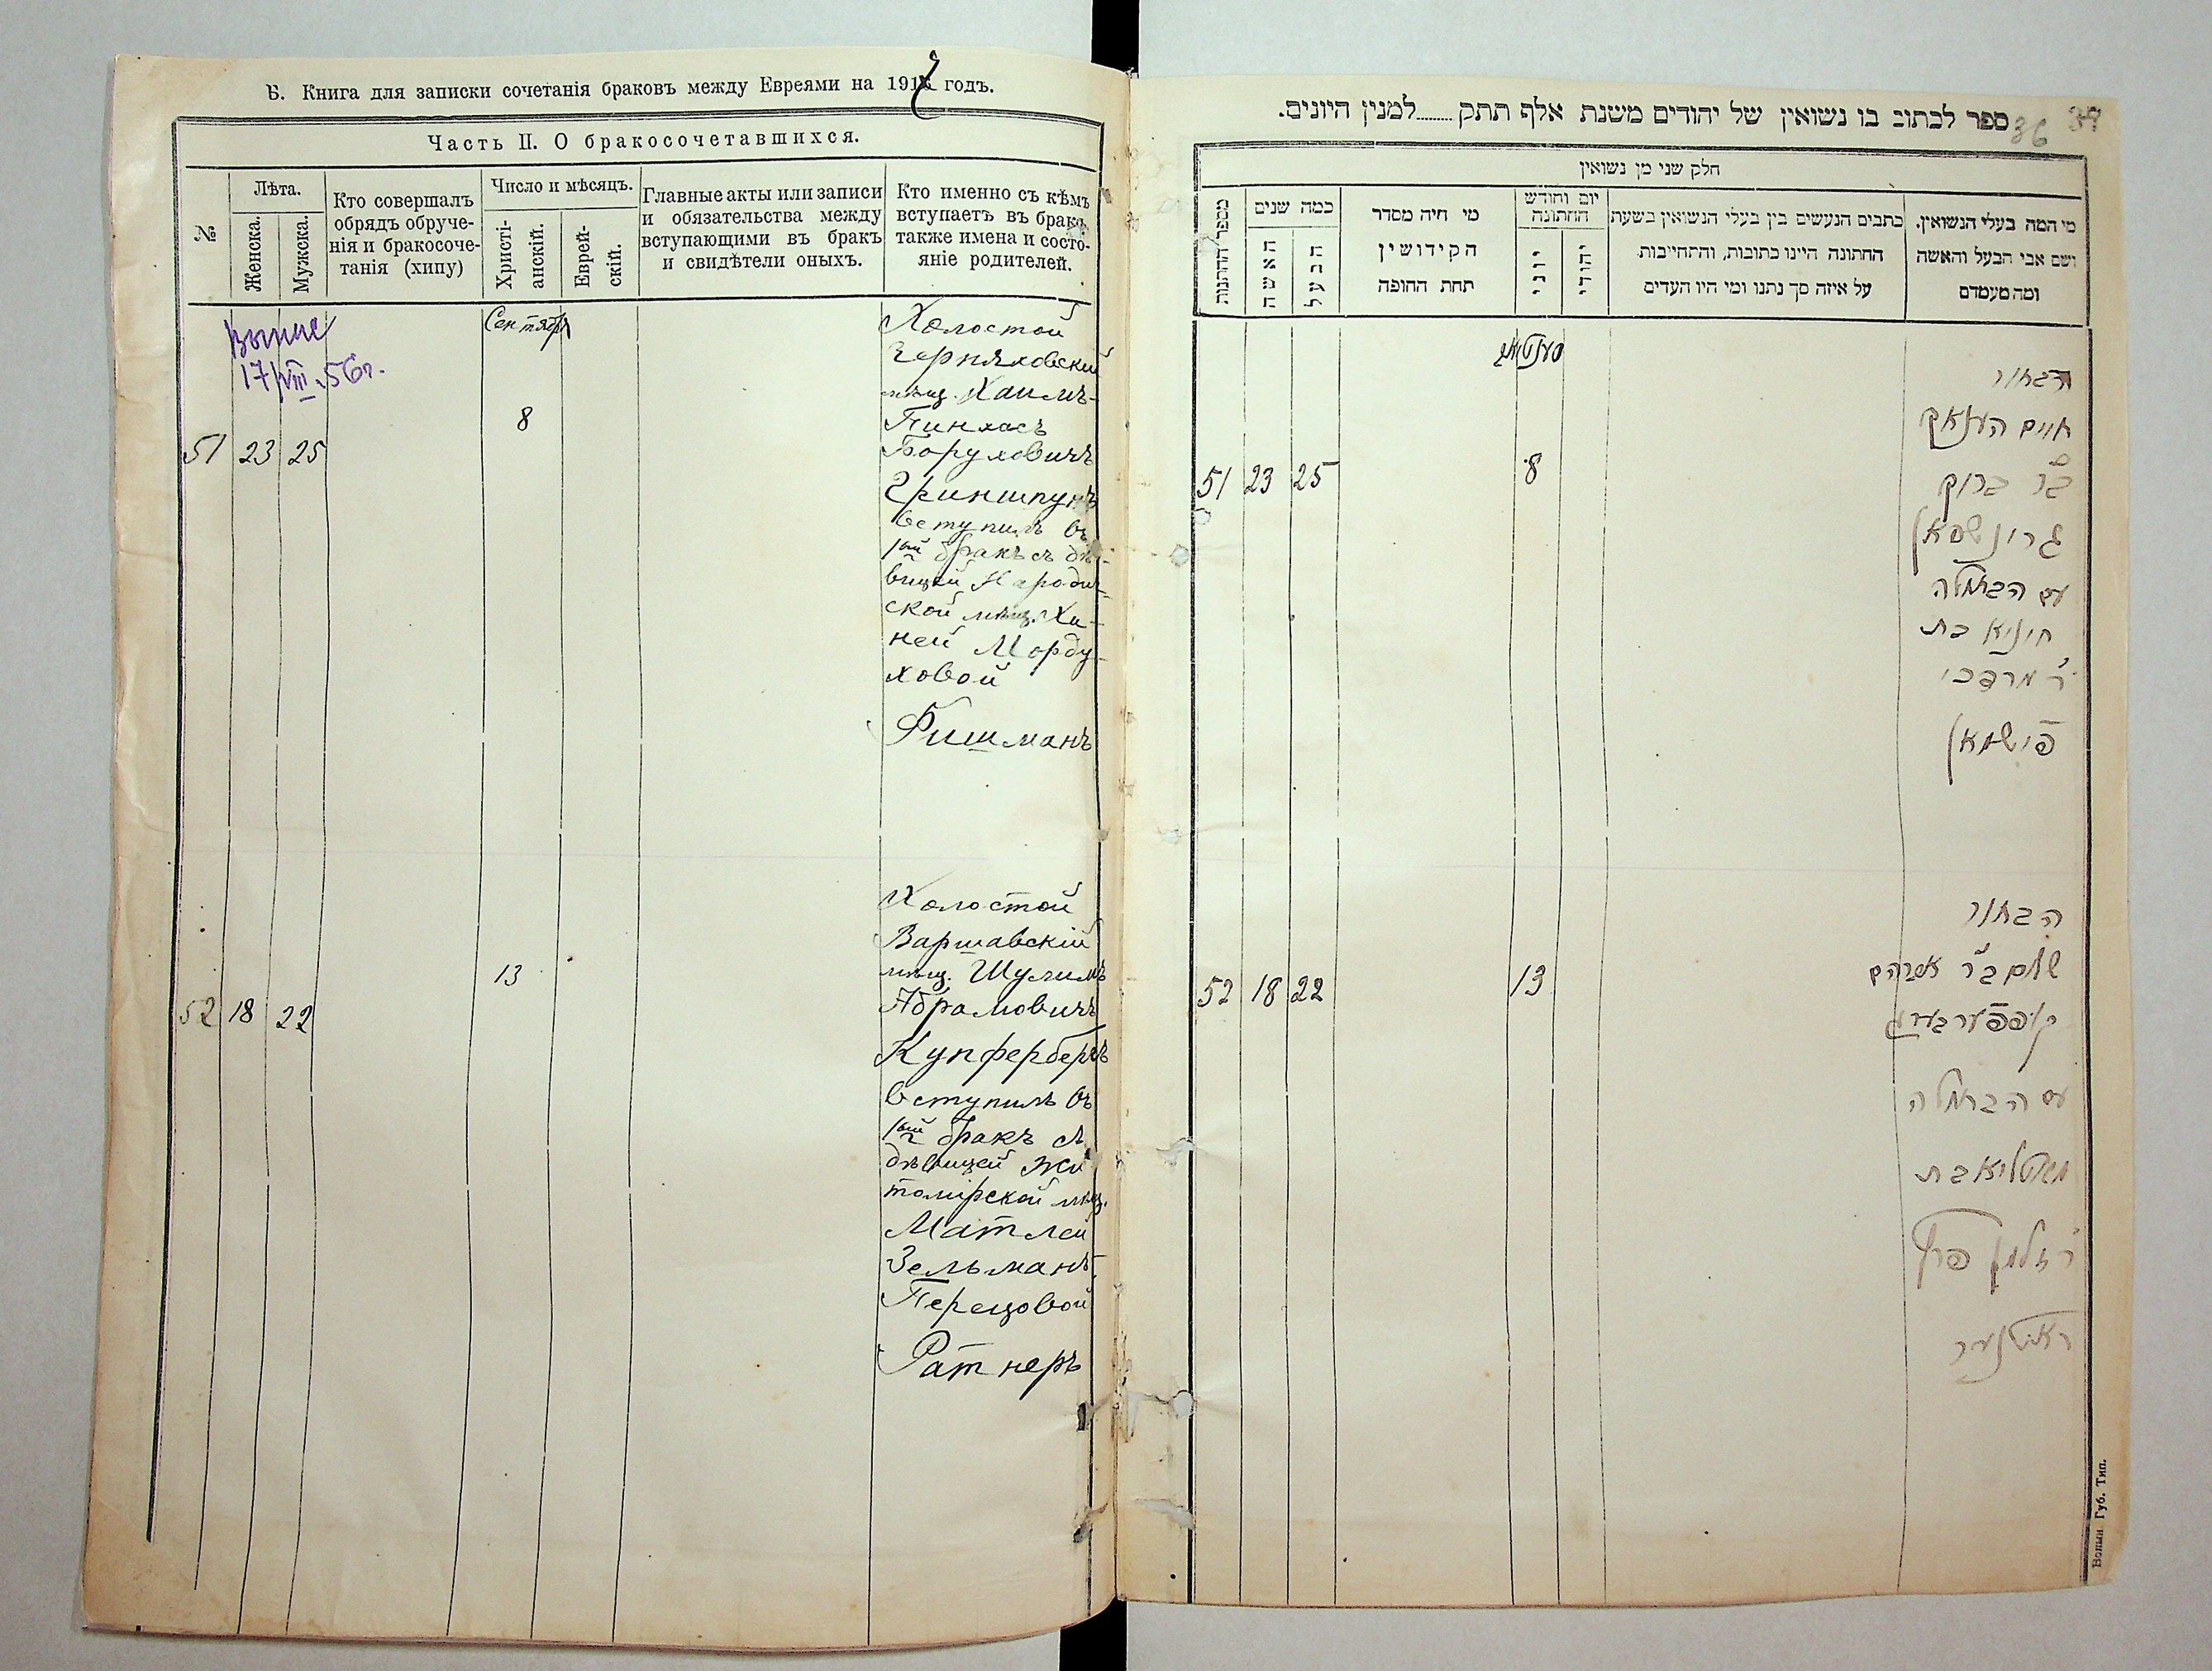 Б. Книга для записки сочетанія браковъ между Евреями на 1917 годъ.
Часть II. О бракосочетавшихся.
№
Лѣта.
Женска.
Мужска.
Кто совершалъ
обрядъ обруче-
нія и бракосоче-
танія (хипу)
Число и мѣсяцъ.
Христі-
анскій.
Еврей-
скій.
Главные акты или записи
и обязательства между
вступающими въ бракъ
и свидѣтели оныхъ.
Кто именно съ кѣмъ
вступаетъ въ бракъ,
также имена и состо-
яніе родителей.
17/VIII.56г.
Сентября
51 23 25
8
Холостой
Черняховскій
мѣщ. Хаимъ-
Пинхасъ
Боруховичъ
Гриншпунъ
вступилъ въ
1ый бракъ съ дѣ-
вицей Народич-
ской мѣщ. Хи-
ней Морду-
ховой
Фишманъ
52 18 22
13
Холостой
Варшавскій
мѣщ. Шулимъ
Абрамовичъ
Купфербергъ
вступилъ въ
1ый бракъ съ
дѣвицей Жи
томірской мѣщ.
Матлей
Зельманъ-
Перецовой
Ратнеръ
ספר לכתוב בו נשואין של יהודים משנת אלף תתק........למנין היונים.
36
חלק שני מן נשואין
מספר החתונות
כמה שנים
האשה
הבעל
מי היה מסדר
הקידושין
תחת החופה
יום וחודש
החתונה
יוני
יהודי
כתבים הנעשים בין בעלי הנשואין בשעת
החתונה היינו כתובות, והתחייבות
על איזה סך נתנו ומי היו העדים
מי המה בעלי הנשואין.
ושם אבי הבעל והאשה
ומה מעמדם
51 23 25
8
הבחור
חיים
ב"ר ברוך
גרינשפאן
עם הבתולה
חיניא בת
ר' מרדכי
פישמאן
52 18 22
13
הבחור
שלום ב"ר אברהם
קופפערבערג
עם הבתולה
מאטליא בת
ר' זלמן פרץ
ראטנער
Волын. Губ. Тип.